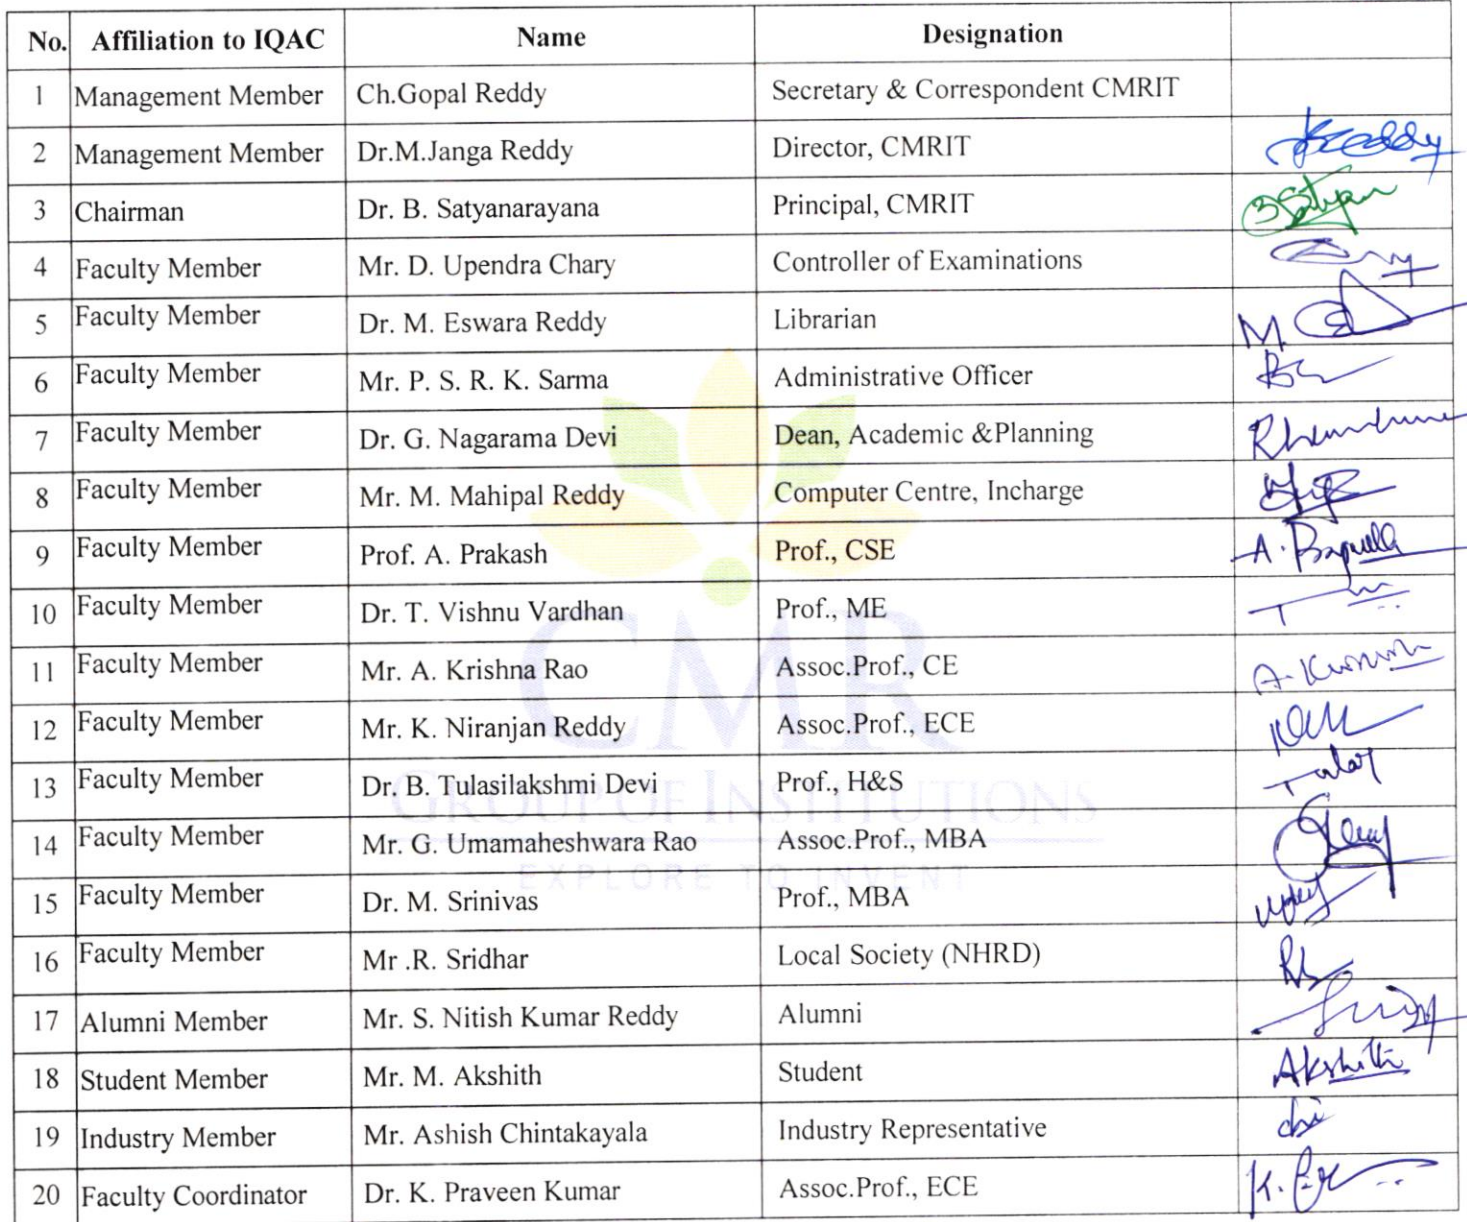 No. Affiliation to IQAC Name Designation
1 Management Member Ch.Gopal Reddy Secretary & Correspondent CMRIT
2 Management Member Dr.M.Janga Reddy Director, CMRIT
3 Chairman Dr. B. Satyanarayana Principal, CMRIT
4 Faculty Member Mr. D. Upendra Chary Controller of Examinations
5 Faculty Member Dr. M. Eswara Reddy Librarian
6 Faculty Member Mr. P. S. R. K. Sarma Administrative Officer
7 Faculty Member Dr. G. Nagarama Devi Dean, Academic &Planning
8 Faculty Member Mr. M. Mahipal Reddy Computer Centre, Incharge
9 Faculty Member Prof. A. Prakash Prof., CSE
10 Faculty Member Dr. T. Vishnu Vardhan Prof., ME
11 Faculty Member Mr. A. Krishna Rao Assoc.Prof., CE
12 Faculty Member Mr. K. Niranjan Reddy Assoc.Prof., ECE
13 Faculty Member Dr. B. Tulasilakshmi Devi Prof., H&S
14 Faculty Member Mr. G. Umamaheshwara Rao Assoc.Prof., MBA
15 Faculty Member Dr. M. Srinivas Prof., MBA
16 Faculty Member Mr .R. Sridhar Local Society (NHRD)
17 Alumni Member Mr. S. Nitish Kumar Reddy Alumni
18 Student Member Mr. M. Akshith Student Akshith
19 Industry Member Mr. Ashish Chintakayala Industry Representative
20 Faculty Coordinator Dr. K. Praveen Kumar Assoc.Prof., ECE
CMR
GROUP OF INSTITUTIONS
EXPLORE TO INVENT